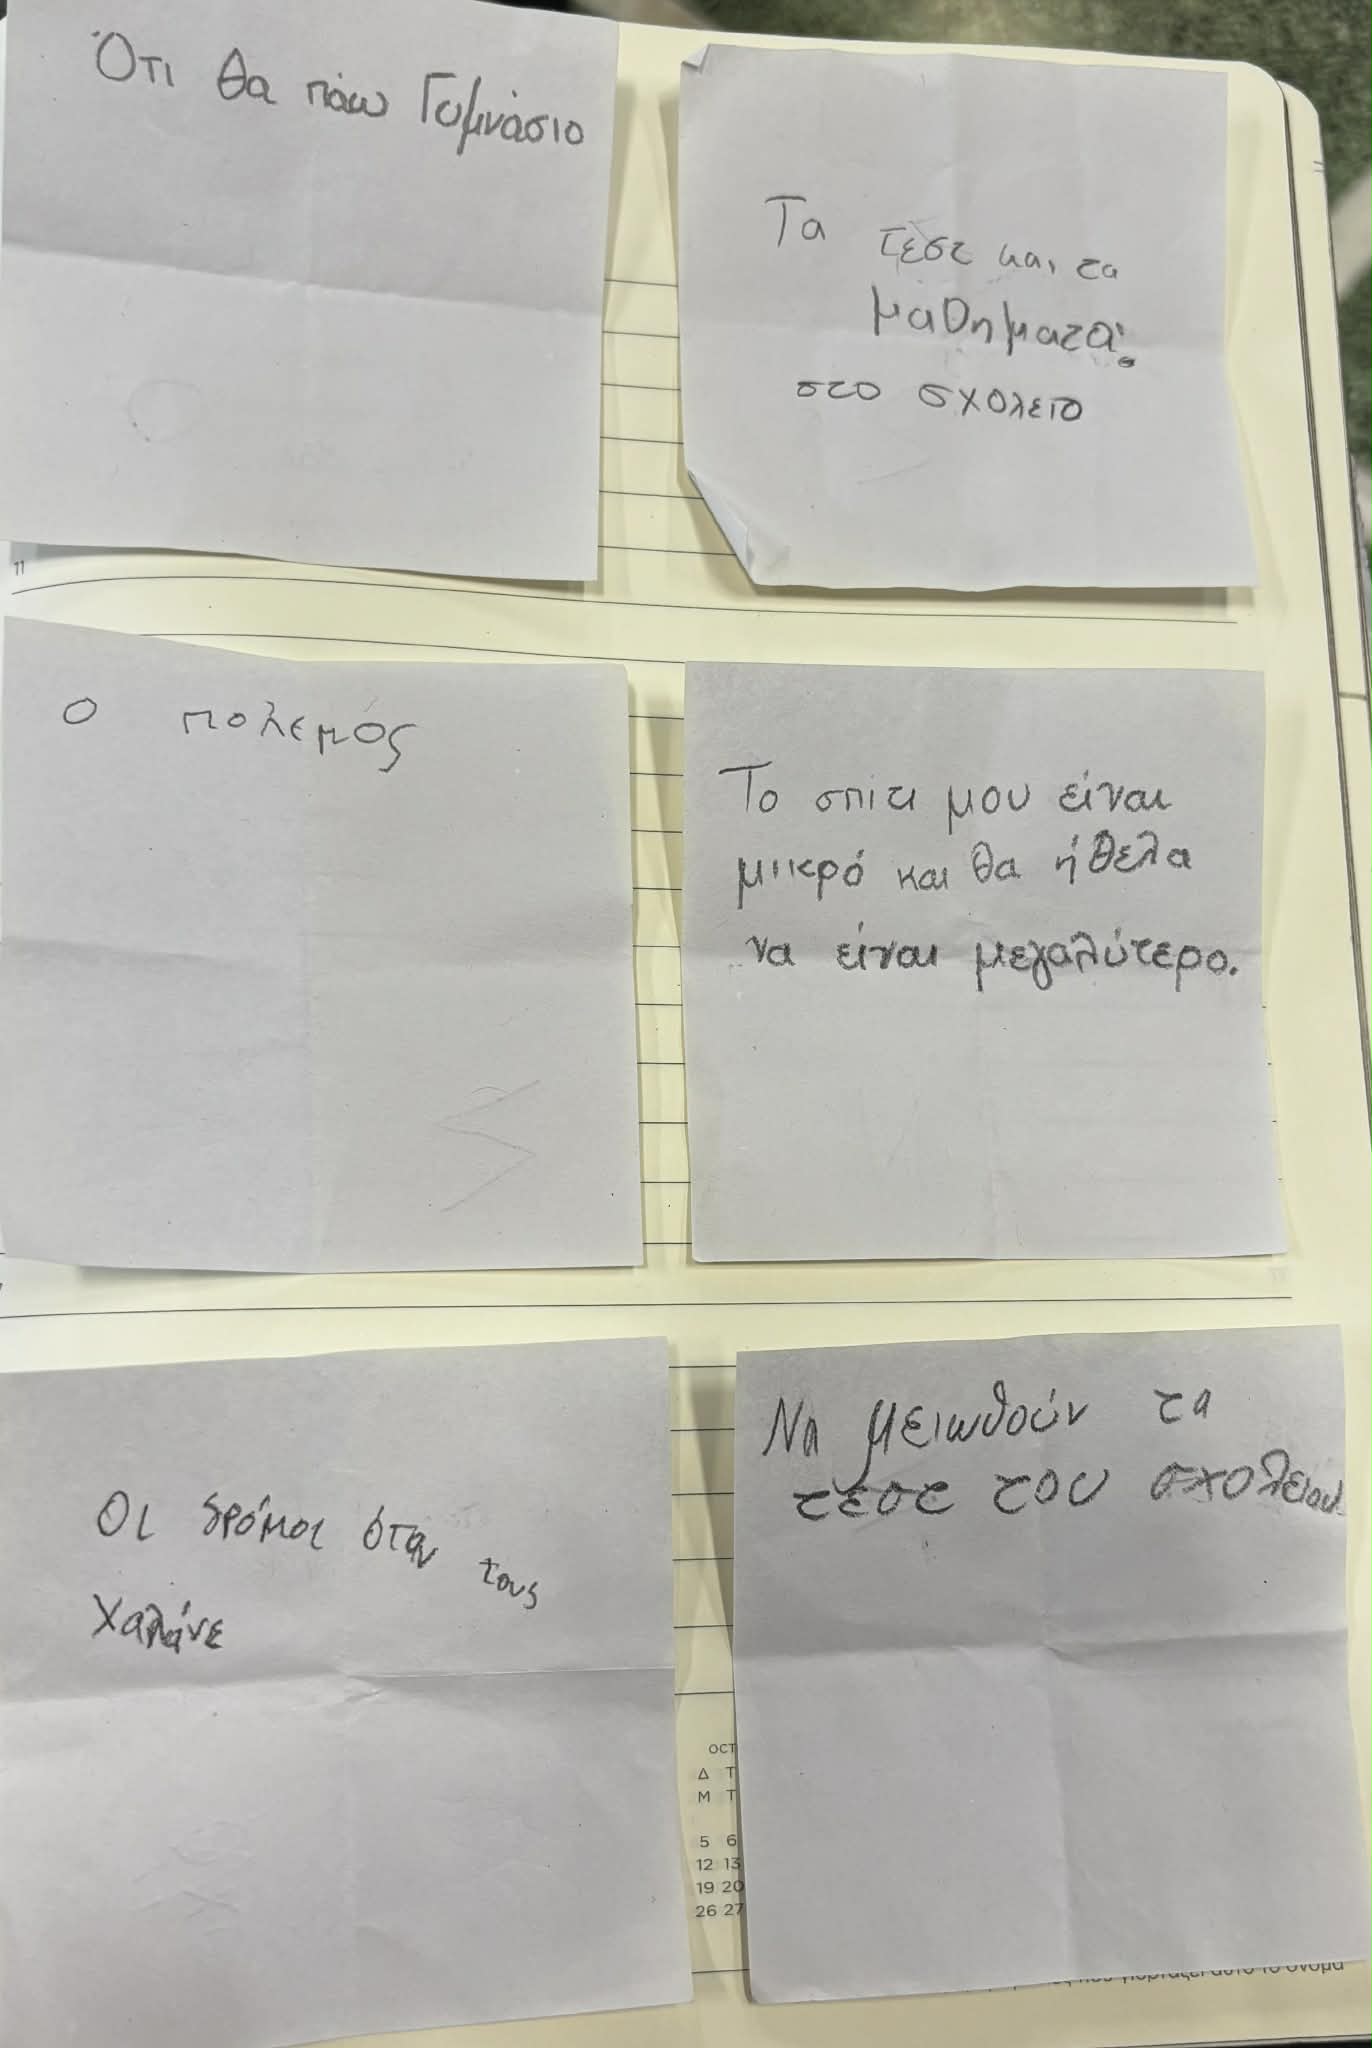 Ότι θα πάω Γυμνάσιο
Τα τεστ και τα
μαθηματα.
στο σχολειο
11
Ο πολεμος
Το σπίτι μου είναι
μικρό και θα ήθελα
να είναι μεγαλύτερο.
Οι δρόμοι όταν τους
χαλάνε
Να μειωθούν τα
τέστ του σχολείου
OCT
Δ Τ
M T
5 6
12 13
19 20
26 27
αυτό το όνομα